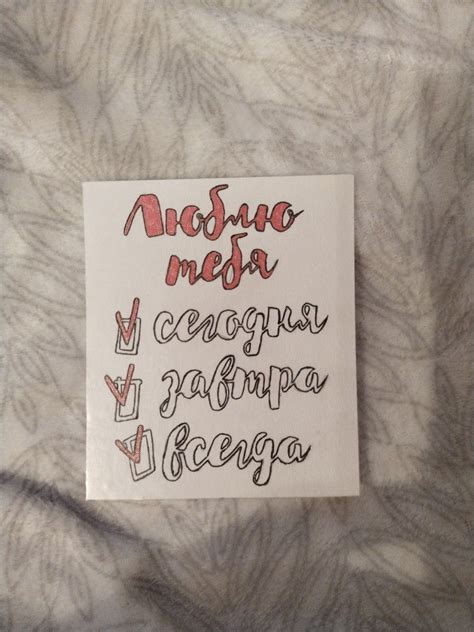 Люблю
тебя
сегодня
завтра
всегда